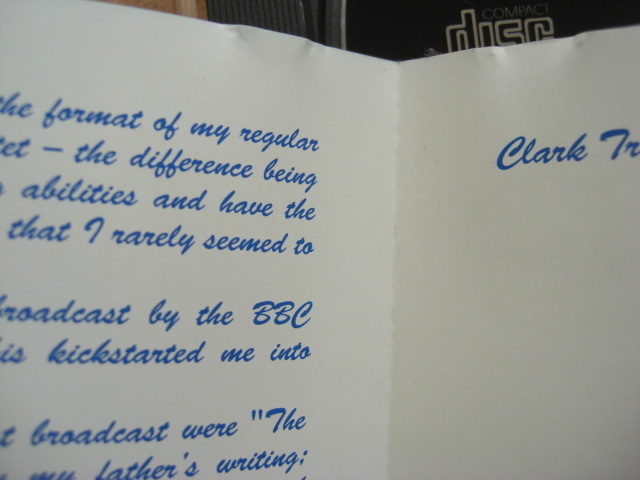 COMPACT
disc
the format of my regular
tet – the difference being
abilities and have the
that I rarely seemed to
broadcast by the BBC
his kickstarted me into
t broadcast were "The
my father's writing;
Clark Tr